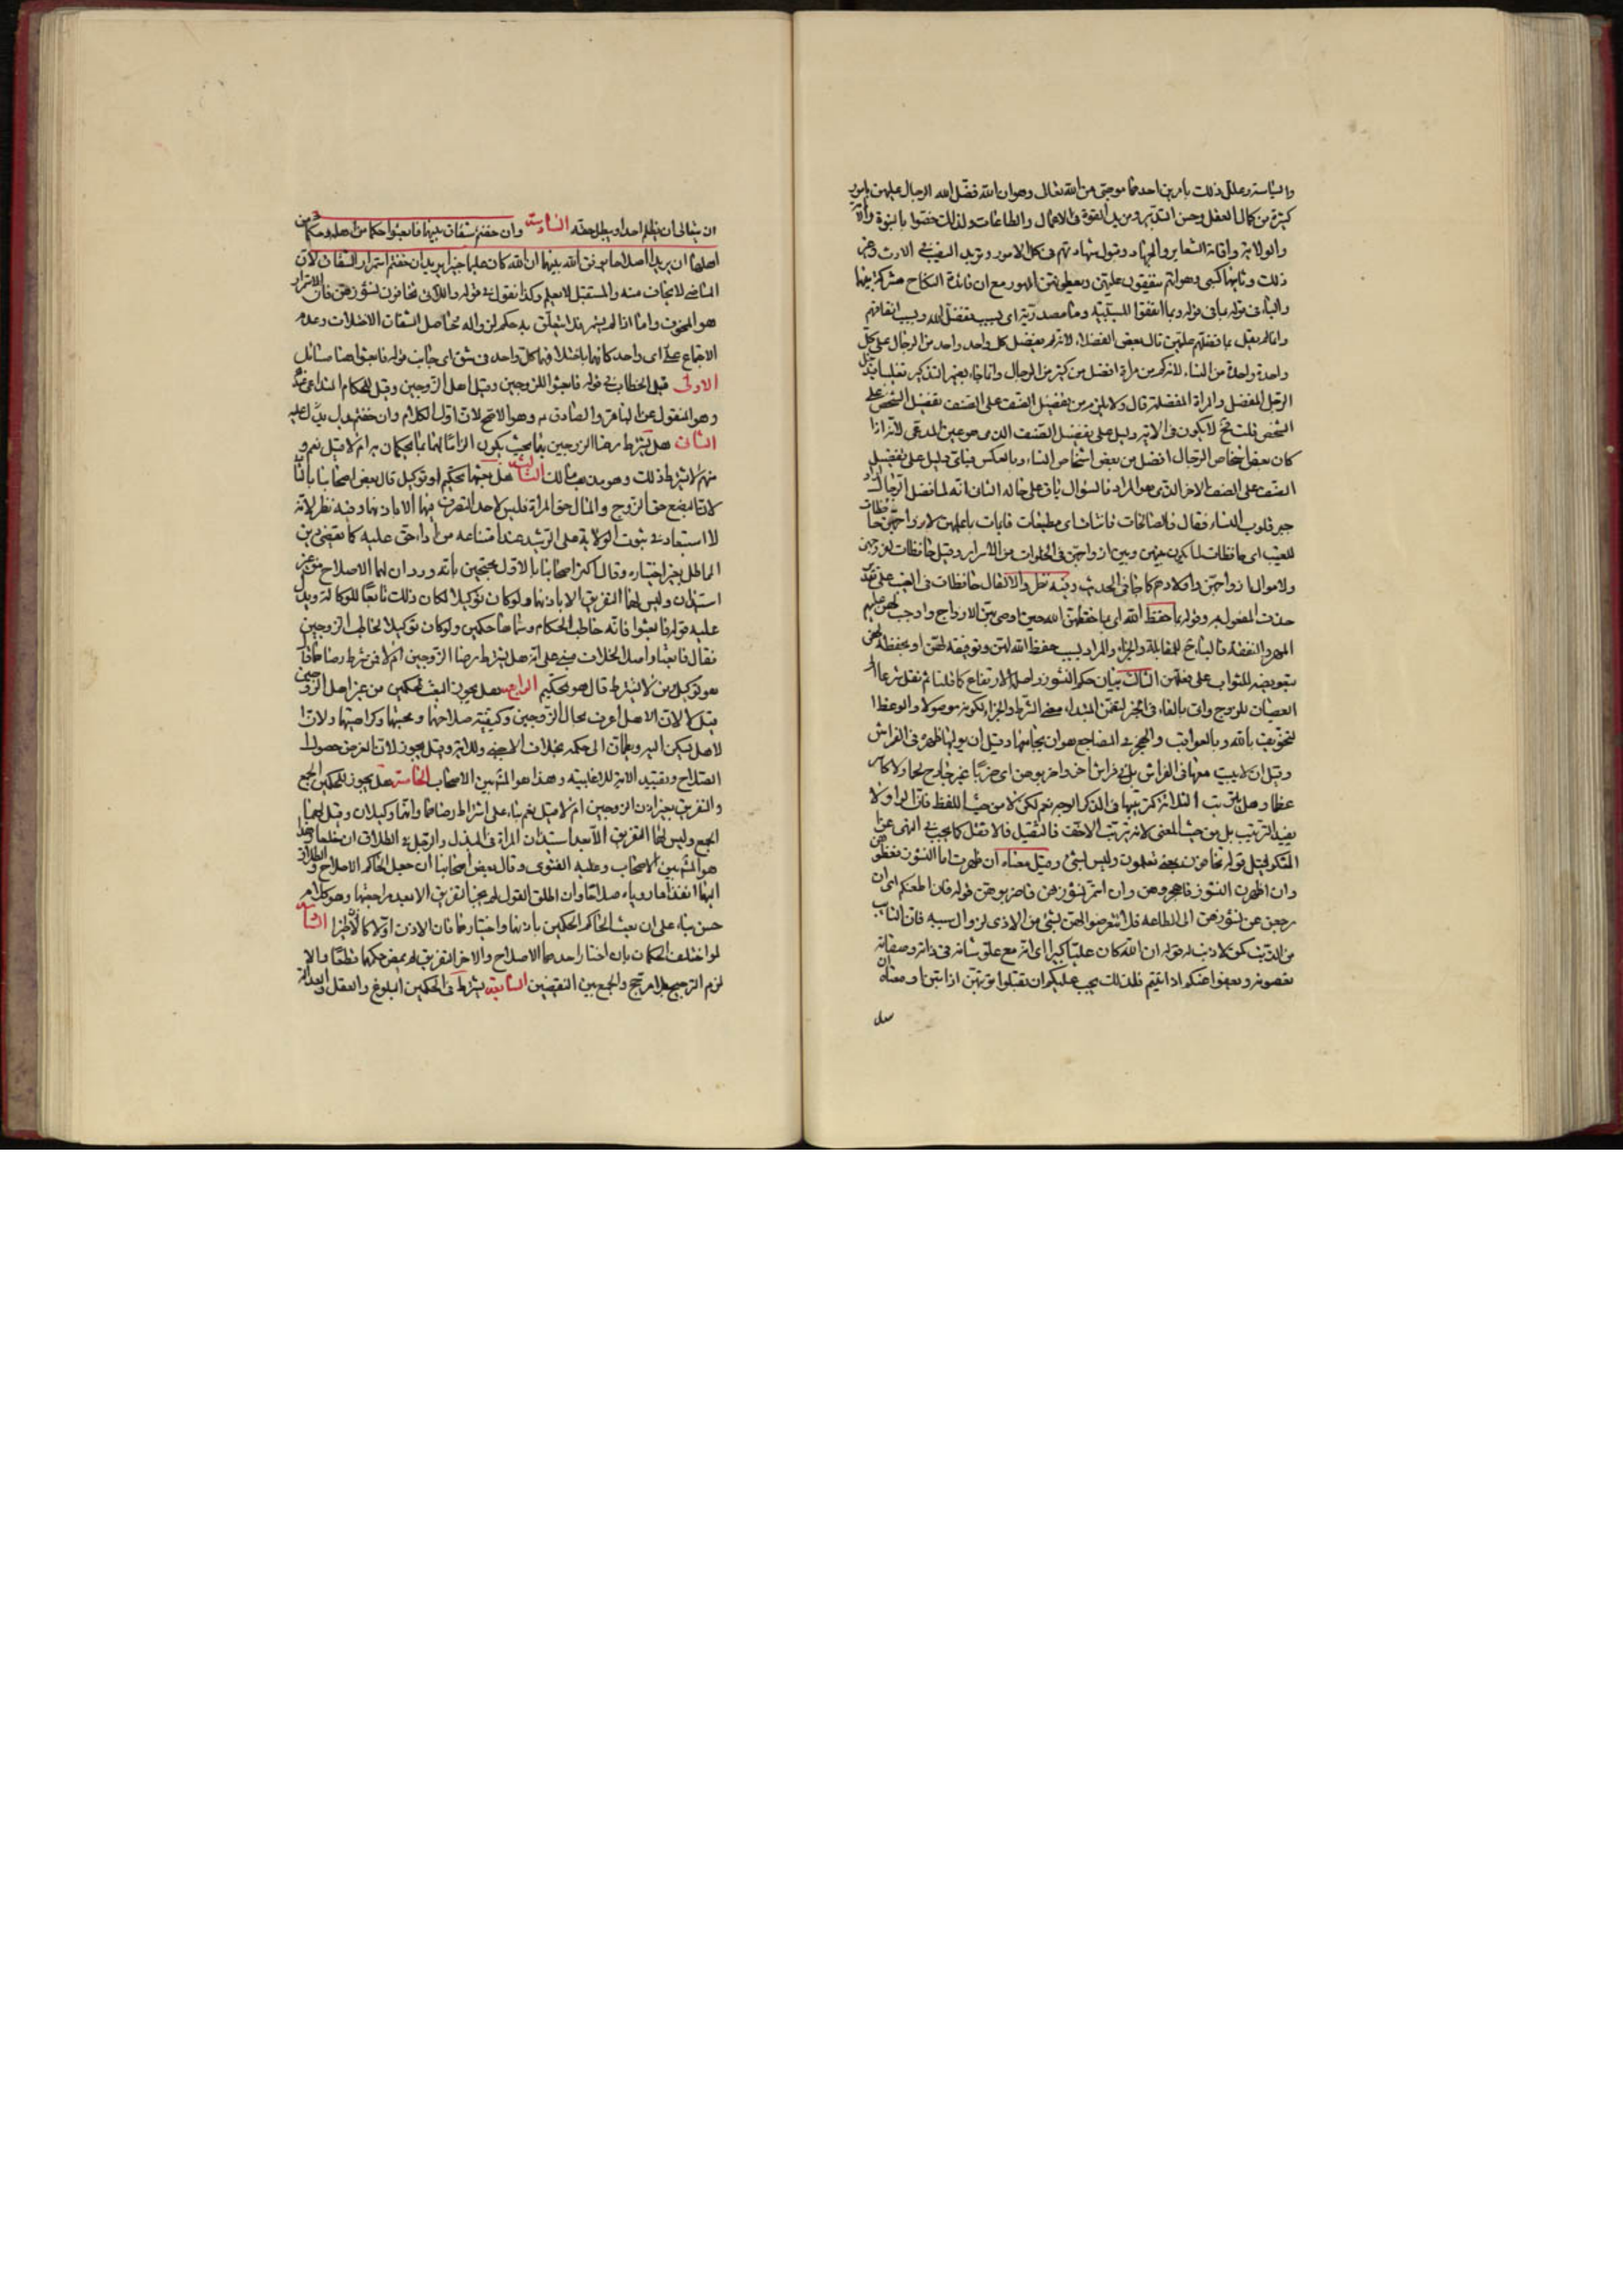 والسياسة وعلل ذلك بامرين احدهما موجبى من الله تعالى وهو ان الله فضل الله الرجال عليهن بامور
كثيرة من كمال العقل وحسن التدبير ومزيد القوة فى الاعمال والطاعات ولذلك خصوا بالنبوة والامامة
والولاية واقامة الشعاير والجهاد وقبول شهادتهم فى كل الامور ومزيد النصيب فى الارث وغير
ذلك وثانيهما كسبى وهو انهم ينفقون عليهن ويعطونهن المهور مع ان فائدة النكاح مشتركة بينهما
والباء فى قوله بما فى قوله وبما انفقوا للسببية وما مصدرية اى بسبب تفضيل الله وبسبب انفاقهم
وانما لم يقل بما فضلهم عليهن قال بعض الفضلاء لانه لم يفضل كل واحد واحد من الرجال على كل
واحدة واحدة من النساء لانه كم من امرأة افضل من كثير من الرجال وانما جاء بضمير التذكير تغليبا
الرجل المفضل والمراة المفضلة قال ولا يلزم من تفضيل الصنف على الصنف تفضيل الشخص على
الشخص قلت فح لا يكون فى الاية دليل على تفضيل الصنف الذى هو عين المدعى لانه اذا
كان بعض اشخاص الرجال افضل من بعض اشخاص النساء وبالعكس فباى دليل على تفضيل
الصنف على الصنف الاخر الذى هو المراد فالسؤال باق على حاله الثانى انه لما فضل الرجال اراد
جبر قلوب النساء فقال فالصالحات قانتات اى مطيعات قايمات بما عليهن لازواجهن حافظات
للغيب اى حافظات لما يكون بينهن وبين ازواجهن فى الخلوات من الاسرار وقيل حافظات لفروجهن
ولاموال ازواجهن واولادهم كما جاء فى الحديث وفيه نظر والا لقال حافظات فى الغيب على
حذف المفعول به وقوله بما حفظ الله اى بما حفظهن الله حين اوصى بهن الازواج واوجب لهن عليهم
المهر والنفقة فالباء ح للمقابلة والجزاء والمراد بسبب حفظ الله لهن وتوفيقه لهن او بحفظه لهن
بتعويضه الثواب على فعلهن الثالث بيان حكم النشوز واصله الارتفاع كما قلنا ثم نقل شرعا الى
العصيان للزوج واتى بالفاء فى الخبر لتضمن المبتداء معنى الشرط والجزاء لكونه موصولا والوعظ
لتخويف بالله وبالعواقب والهجر فى المضاجع هو ان يجانبها وقيل ان يوليها ظهره فى الفراش
وقيل ان لا يبيت معها فى الفراش بل فى فراش اخر واضربوهن اى ضربا غير جارح لحما ولا كاسر
عظما وهل يترتب الثلاثة كترتيبها فى الذكر الوجه نعم لكن لا من حيث اللفظ فان الواو لا
يفيد الترتيب بل من حيث المعنى لانه يترتب الاخف فالثقيل فالاثقل كما يجب فى النهى عن
المنكر وقيل قوله تخافون بمعنى تعلمون وليس بشئ وقيل معناه ان ظهرت امارات النشوز فعظوهن
وان اظهرن النشوز فاهجروهن وان استمر نشوزهن فاضربوهن قوله فان اطعنكم اى ان
رجعن عن نشوزهن الى الطاعة فلا تتعرضوا لهن بشئ من الاذى لزوال سببه فان التائب
من الذنب كمن لا ذنب له قوله ان الله كان عليا كبيرا اى انه مع علو شانه فى ذاته وصفاته
تعصونه ويعفوا عنكم اذا تبتم فلذلك يجب عليكم ان تقبلوا توبتهن اذا تبن او معناه ان
ان يتعالى ان يظلم احدا او يبطل حقه السادسة وان خفتم شقاق بينهما فابعثوا حكما من اهله وحكما من
اهلها ان يريدا اصلاحا يوفق الله بينهما ان الله كان عليما خبيرا يريد ان خفتم استمرار الشقاق لان
الماضى لا يخاف منه والمستقبل لا يعلم وكذا نقول فى قوله واللاتى تخافون نشوزهن فان الاستمرار
هو المخوف واما اذا لم يستمر فذا شئ لا يتعلق به حكم لزواله مخاصل الشقاق الاختلاف وعدم
الاجتماع على اى واحد كانهما باختلافهما كل واحد فى شق اى جانب قوله فابعثوا هنا مسائل
الاولى قيل الخطاب فى قوله فابعثوا للزوجين وقيل اهل الزوجين وقيل للحكام
وهو المنقول عن الباقر والصادق ع وهو الاصح لان اول الكلام وان خفتم يدل عليه
الثانى هل يشترط رضا الزوجين ببعث بحيث يكون الزاما لهما بما يحكمان به ام لا قيل نعم و
منهم من لا يشترط ذلك وهو مذهب مالك الثالث هل بعثهما تحكيم او توكيل قال بعض اصحابنا بالثانى
لان البضع حق الزوج والمال حق المراة فليس لاحد التصرف فيهما الا باذنهما وفيه نظر لانه
لا استبعاد فى ثبوت الولاية على الرشيد عند امتناعه من اداء حق عليه كما نقضى دين
المماطل بغير اختياره وقال اكثر اصحابنا بالاول محتجين بانه ورد ان لهما الاصلاح من غير
استيذان وليس لهما التفريق الا باذنهما ولو كان توكيلا لكان ذلك تابعا للوكالة ويدل
عليه قوله فابعثوا فانه خاطب الحكام وسماهما حكمين ولو كان توكيلا لخاطب الزوجين
فقال فابعثا واصل الخلاف مبنى على انه هل يشترط رضا الزوجين ام لا فمن شرط رضاهما قال
هو توكيل ومن لا يشترط قال هو تحكيم الرابع هل يجوز البعث للحكمين من غير اهل الزوجين
قيل لا لان الاهل اعرف بحال الزوجين وكيفية صلاحهما ومحبتهما وكراهتهما ولان
الاهل يسكن اليه ويطمان الى حكمه بخلاف الاجنبى وللاية وقيل يجوز لان الغرض حصول
الصلاح وتقييد الاية للاغلبية وهذا هو المشهور بين الاصحاب الخامسة هل يجوز للحكمين الجمع
والتفريق بغير اذن الزوجين ام لا قيل نعم بناء على اشتراط رضاهما وانهما وكيلان وقيل لهما
الجمع وليس لهما التفريق الا بعد استيذان المراة فى البذل والرجل فى الطلاق ان خلعا وهذا
هو المشهور بين الاصحاب وعليه الفتوى وقال بعض اصحابنا ان جعل الحاكم الاصلاح والطلاق
اليهما انفذا ما راوياه صلاحا وان اطلق القول لم يجز التفريق الا بعد مراجعتهما وهو كلام
حسن بناء على ان بعث الحاكم الحكمين باذنهما واختيارهما فان الاذن اولا كالاذن اخرا السادسة
لو اختلف الحكمان بان اختار احدهما الاصلاح والاخر التفريق لم يمض حكمهما قطعا والا
لزم الترجيح بلا مرجح والجمع بين النقيضين السابعة يشترط فى الحكمين البلوغ والعقل والعدالة